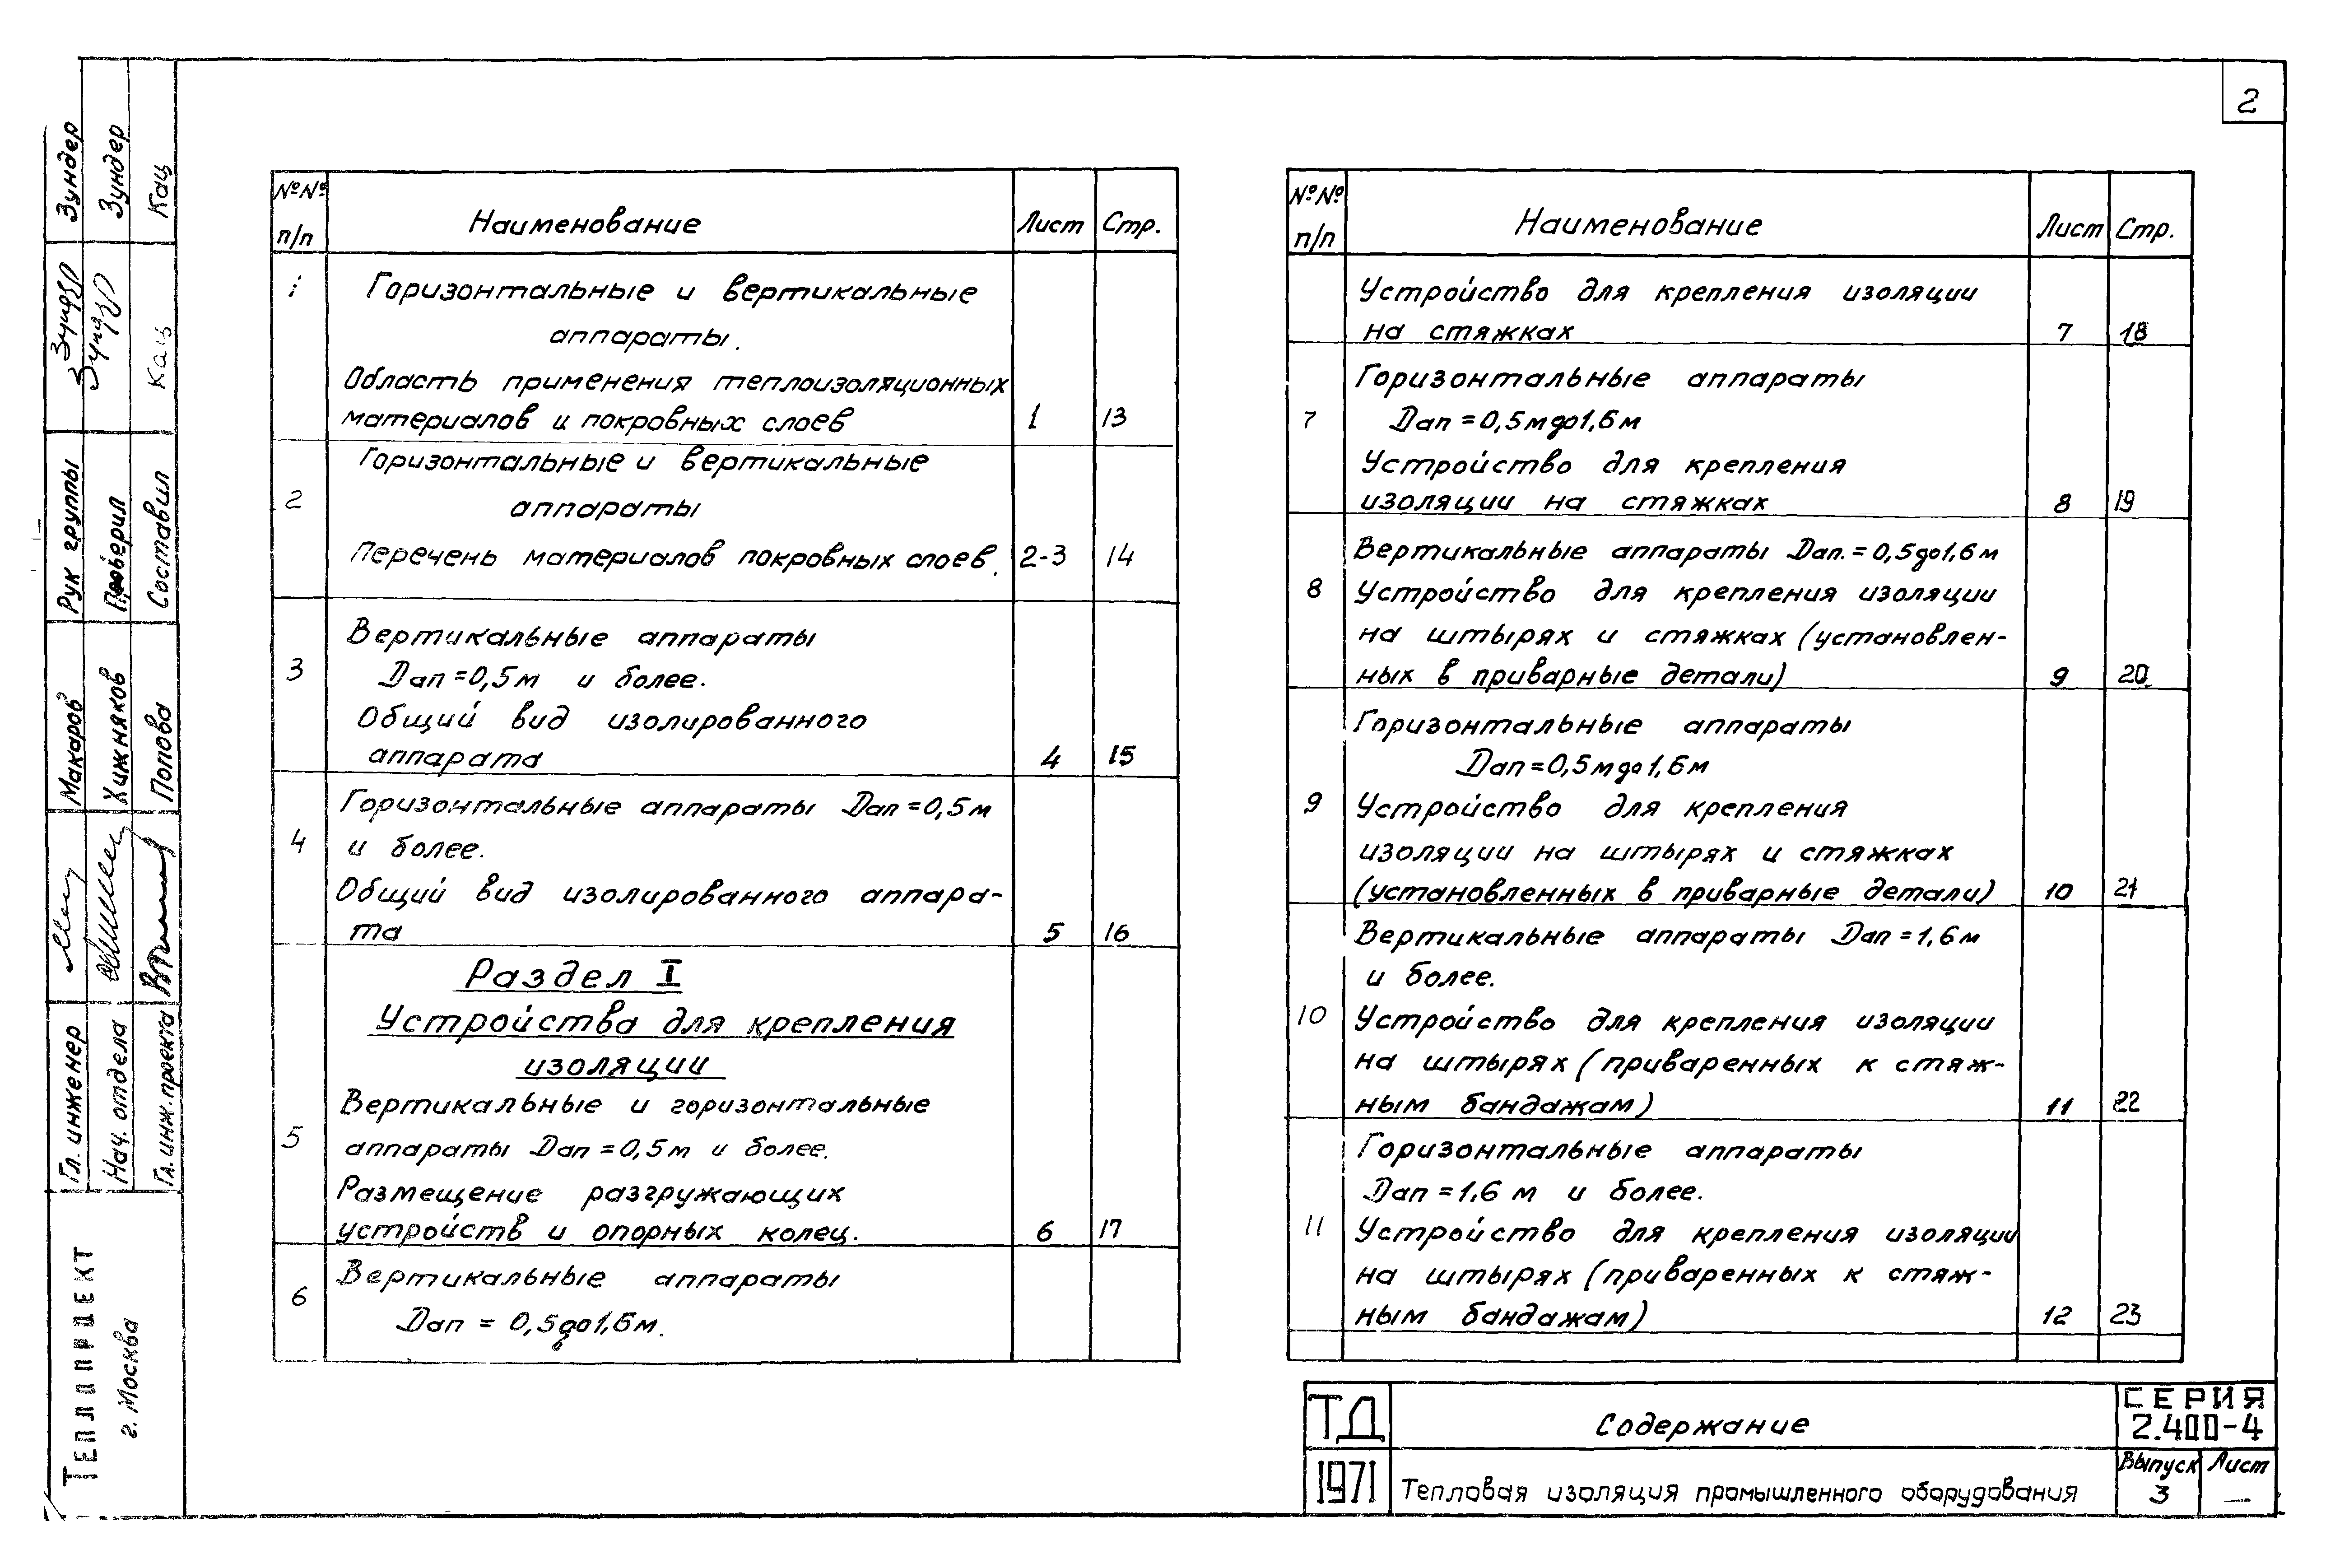 2
№№ п/п Наименование Лист Стр.
1 Горизонтальные и вертикальные
аппараты.
Область применения теплоизоляционных
материалов и покровных слоев 1 13
Горизонтальные и вертикальные
2 аппараты
Перечень материалов покровных слоев. 2-3 14
Вертикальные аппараты
3 Dап = 0,5м и более.
Общий вид изолированного
аппарата 4 15
Горизонтальные аппараты Dап = 0,5м
4 и более.
Общий вид изолированного аппара-
та 5 16
Раздел I
Устройства для крепления
изоляции
Вертикальные и горизонтальные
5 аппараты Dап = 0,5м и более.
Размещение разгружающих
устройств и опорных колец. 6 17
Вертикальные аппараты
6 Dап = 0,5до1,6м.
№№ п/п Наименование Лист Стр.
Устройство для крепления изоляции
на стяжках 7 18
Горизонтальные аппараты
7 Dап = 0,5мдо1,6м
Устройство для крепления
изоляции на стяжках 8 19
Вертикальные аппараты Dап. = 0,5до1,6м
8 Устройство для крепления изоляции
на штырях и стяжках (установлен-
ных в приварные детали) 9 20
Горизонтальные аппараты
Dап = 0,5мдо1,6м
9 Устройство для крепления
изоляции на штырях и стяжках
(установленных в приварные детали) 10 21
Вертикальные аппараты Dап = 1,6м
и более.
10 Устройство для крепления изоляции
на штырях (приваренных к стяж-
ным бандажам) 11 22
Горизонтальные аппараты
Dап = 1,6 м и более.
11 Устройство для крепления изоляции
на штырях (приваренных к стяж-
ным бандажам) 12 23
ТД Содержание СЕРИЯ
2.400-4
1971 Тепловая изоляция промышленного оборудования Выпуск Лист
3 —
ТЕПЛОПРОЕКТ
г. Москва
Гл. инженер Макаров Рук группы Зундер Зундер
Нач. отдела Хижняков Проверил Зундер Зундер
Гл. инж. проекта Попова Составил Кац Кац